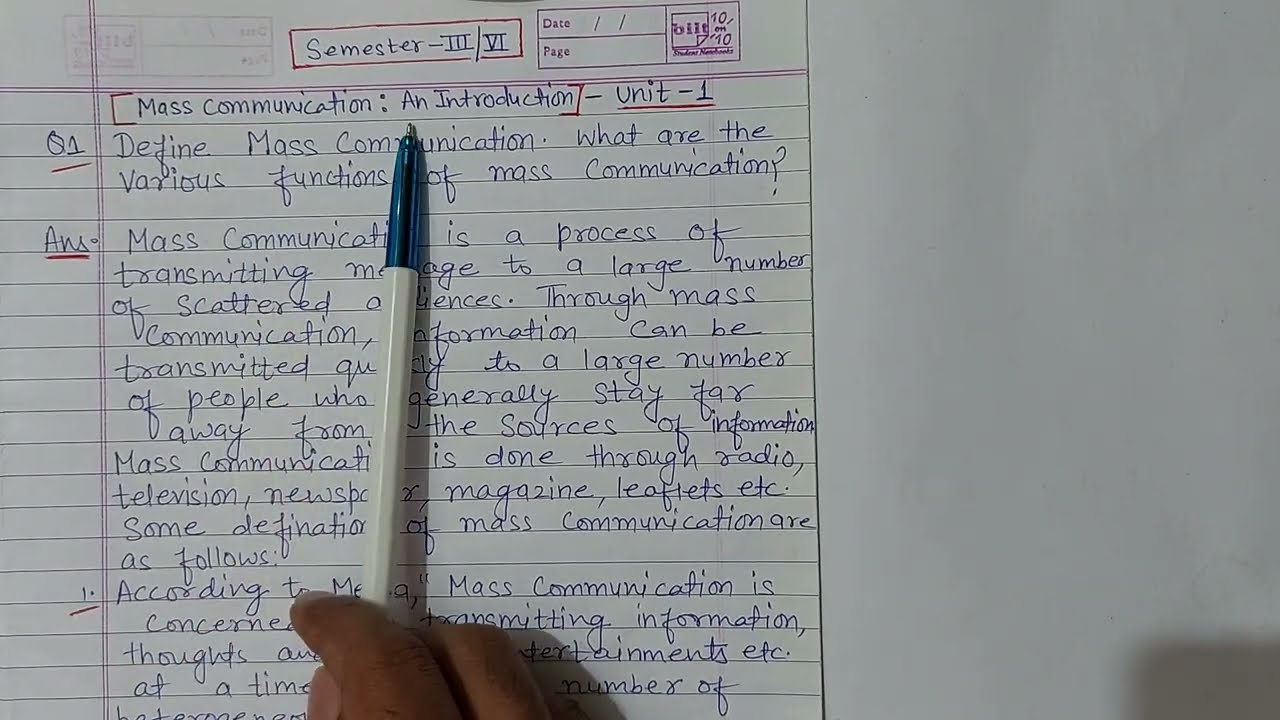 Semester-III/VI
Date / /
Page
bilt 10 on 10
Student Notebooks
[Mass Communication: An Introduction] - Unit-1
Q1 Define Mass Communication. What are the
various functions of mass Communication?
Ans- Mass Communicati is a process of
transmitting me age to a large number
of scattered a iences. Through mass
Communication, nformation can be
transmitted qu ly to a large number
of people who generally stay far
away from the sources of information
Mass Communicati is done through radio,
television, newspa r, magazine, leaflets etc.
Some defination of mass Communication are
as follows:
1. According to Me a, "Mass Communication is
concerne transmitting information,
thoughts an tertainments etc.
at a time number of
heterogeneo